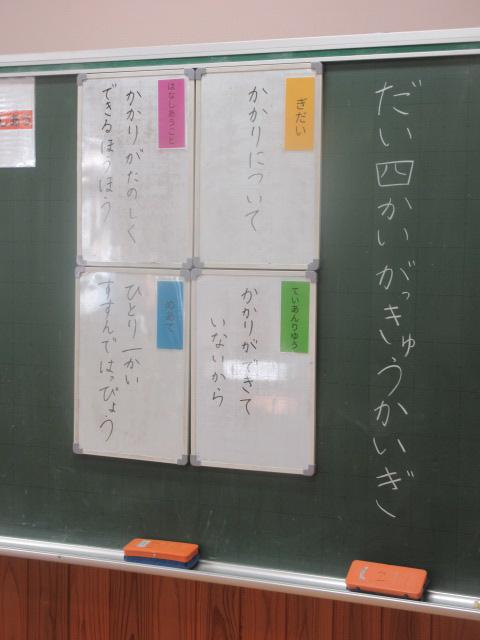 だい四かいがっきゅうかいぎ
ぎだい
かかりについて
ていあんりゆう
かかりができて
いないから
はなしあうこと
かかりがたのしく
できるほうほう
めあて
ひとり一かい
すすんではっぴょう
2